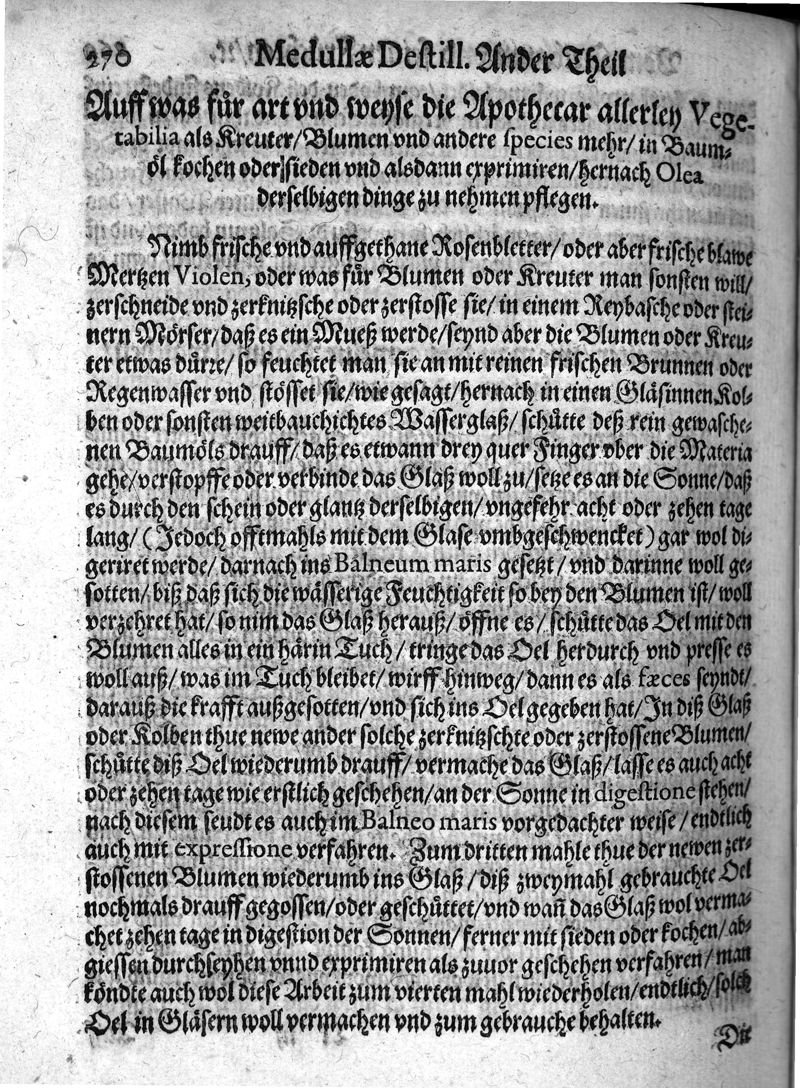 270 Medullæ Destill. Ander Theil
Auff was für art vnd weyse die Apothecar allerley Vege-
tabilia als Kreuter/Blumen vnd andere species mehr/in Baum-
öl kochen oder sieden vnd alsdann exprimiren/hernach Olea
derselbigen dinge zu nehmen pflegen.
Nimb frische vnd auffgethane Rosenbletter/oder aber frische blawe
Mertzen Violen, oder was für Blumen oder Kreuter man sonsten will/
zerschneide vnd zerknitzsche oder zerstosse sie/in einem Reybasche oder stei-
nern Mörser/daß es ein Mueß werde/seynd aber die Blumen oder Kreu-
ter etwas dürre/so feuchtet man sie an mit reinen frischen Brunnen oder
Regenwasser vnd stösset sie/wie gesagt/hernach in einen Gläsinnen Kol-
ben oder sonsten weitbauchichtes Wasserglaß/schütte deß rein gewasche-
nen Baumöls drauff/daß es etwann drey quer Finger vber die Materia
gehe/verstopffe oder verbinde das Glaß woll zu/setze es an die Sonne/daß
es durch den schein oder glantz derselbigen/vngefehr acht oder zehen tage
lang/(Jedoch offtmahls mit dem Glase vmbgeschwencket) gar wol di-
geriret werde/darnach ins Balneum maris gesetzt/vnd darinne woll ge-
sotten/biß daß sich die wässerige Feuchtigkeit so bey den Blumen ist/woll
verzehret hat/so nim das Glaß herauß/öffne es/schütte das Oel mit den
Blumen alles in ein härin Tuch/tringe das Oel herdurch vnd presse es
woll auß/was im Tuch bleibet/wirff hinweg/dann es als fæces seyndt/
darauß die krafft außgesotten/vnd sich ins Oel gegeben hat/In diß Glaß
oder Kolben thue newe ander solche zerknitzschte oder zerstossene Blumen/
schütte diß Oel wiederumb drauff/vermache das Glaß/lasse es auch acht
oder zehen tage wie erstlich geschehen/an der Sonne in digestione stehen/
nach diesem seudt es auch im Balneo maris vorgedachter weise/endtlich
auch mit expressione verfahren. Zum dritten mahle thue der newen zer-
stossenen Blumen wiederumb ins Glaß/diß zweymahl gebrauchte Oel
nochmals drauff gegossen/oder geschüttet/vnd wañ das Glaß wol verma-
chet zehen tage in digestion der Sonnen/ferner mit sieden oder kochen/ab-
giessen durchseyhen vnnd exprimiren als zuvor geschehen verfahren/man
köndte auch wol diese Arbeit zum vierten mahl wiederholen/endtlich/solch
Oel in Gläsern woll vermachen vnd zum gebrauche behalten.
Dit